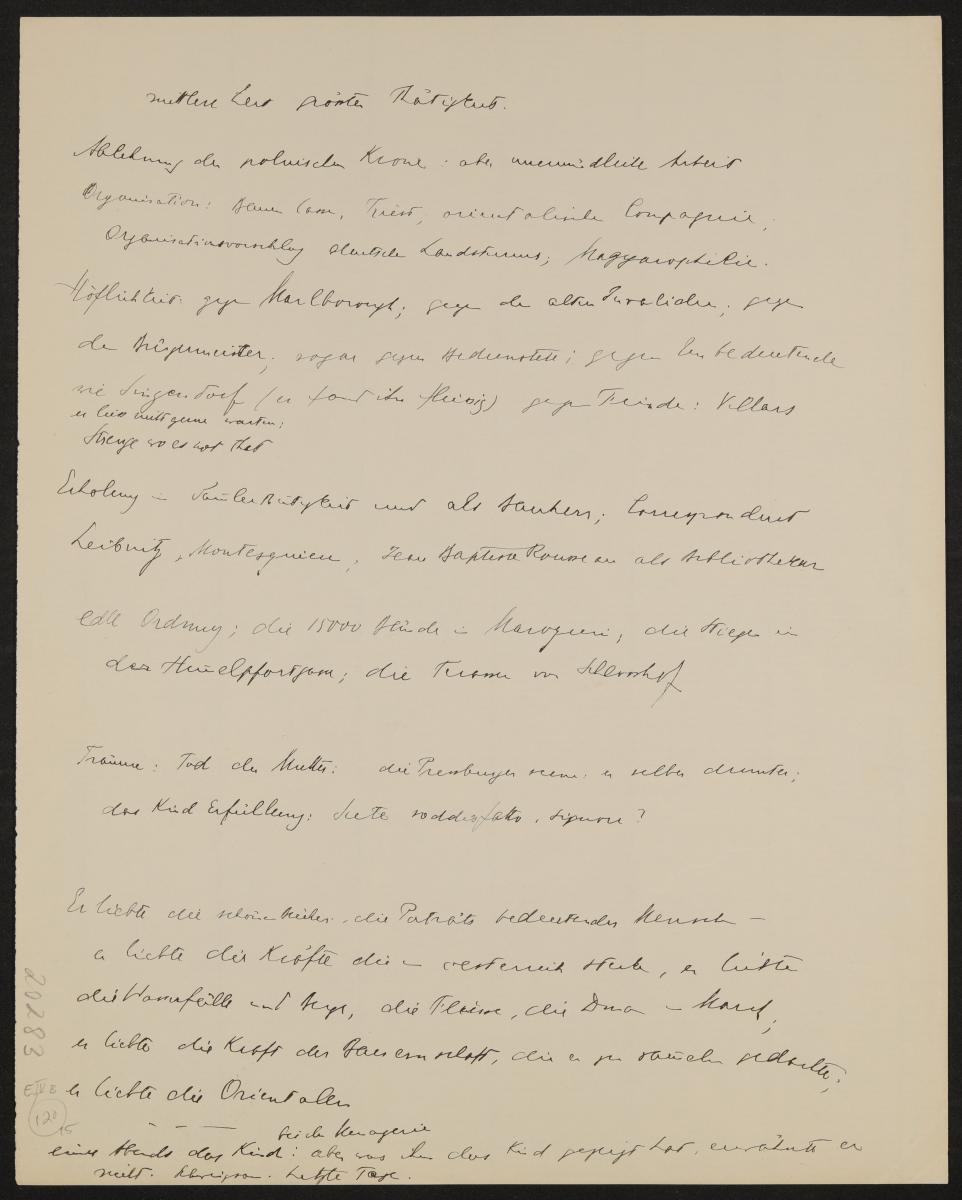 mittlere Zeit grösster Thätigkeit.
Ablehnung der polnischen Krone: aber unermüdliche Arbeit
Organisation: Triest, orientalische Compagnie,
Organisationsvorschlag deutsche Landsturms; Magyarophilie.
Höflichkeit: gegen Marlborough; gegen die alten Invaliden; gegen
den Bürgermeister, sogar gegen Bedienstete; gegen Unbedeutende
wie Sinzendorf (er fand ihn fleissig) gegen Feinde: Villars
er liess nicht gerne warten;
Strenge wo es not that
Erholung in Sammlerthätigkeit und als Bauherr; Correspondent
Leibnitz, Montesquieu, Jean Baptiste Rousseau als Bibliothekar
edle Ordnung; die 15000 Bände in Maroquin; die Stiege in
der Himmelpfortgasse; die Terrasse von Schlosshof
Träume: Tod der Mutter: die Pressburger scene: er selber darunter;
das Kind Erfüllung: Siete soddisfatto, signore?
Er liebte die schönen Bücher, die Porträts bedeutender Menschen —
er liebte die Kräfte die in oesterreich stecken, er liebte
die Wasserfälle und Berge, die Flüsse, die Donau March,
er liebte die Kraft der Bauernschaft, die er zu gedachte;
er liebte die Orientalen
— — —
bei der Menagerie
eines Abends das Kind: aber was ihm das Kind gezeigt hat, erwähnte er
nicht. Letzte Tage.
20283
E IV B
120
15